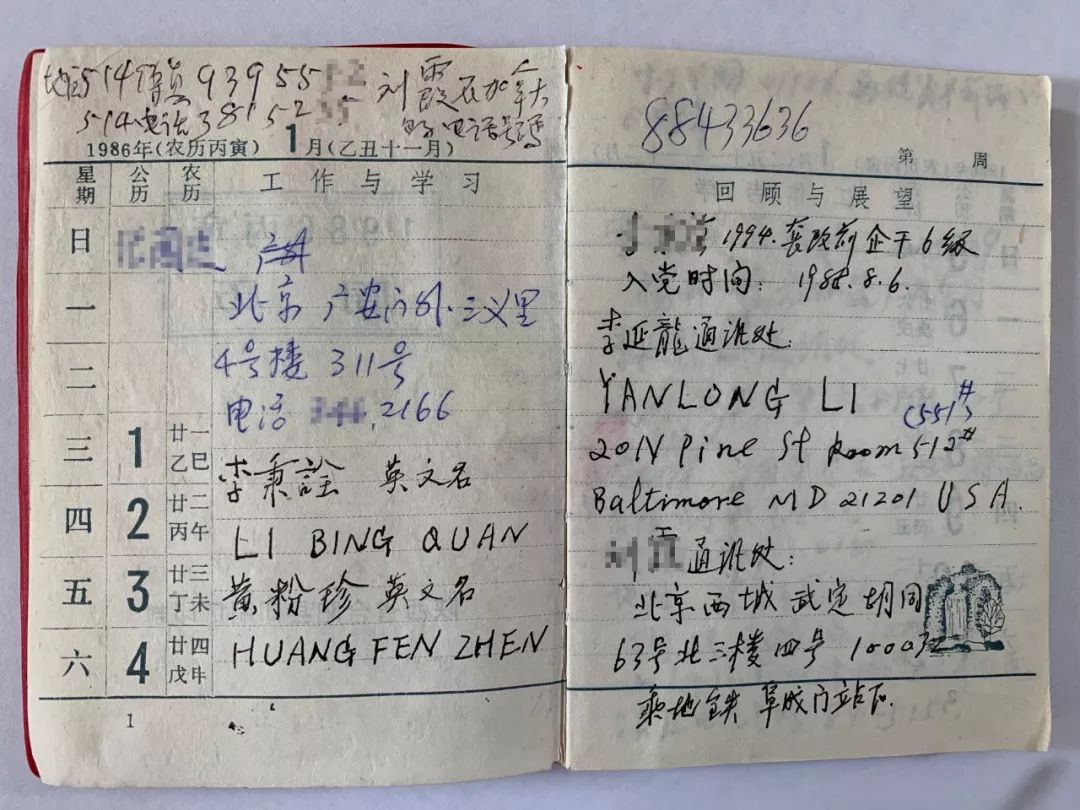 514傳真93955
刘霞在加拿大
514电话38152
的电话号码
1986年(农历丙寅) 1月(乙丑十一月)
星期 公历 农历 工作与学习
日
一 北京广安门外.三义里
二 4号楼 311号
电话 2166
三 1 廿一乙巳
李秉詮 英文名
四 2 廿二丙午
LI BING QUAN
五 3 廿三丁未 黄粉珍 英文名
六 4 廿四戊申 HUANG FEN ZHEN
1
88433636
第 周
回顾与展望
1994.套改前企干6级
入党时间: 1988.8.6.
李延龍通讯处:
YANLONG LI
(551#)
201N Pine St Room 512#
Baltimore MD 21201 USA.
通讯处:
北京西城武定胡同
63号北三楼四号 100032
乘地铁阜成门站下.